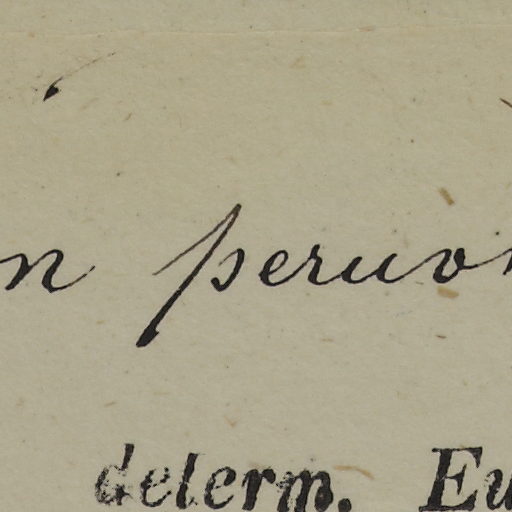 n peruv
determ. Eu